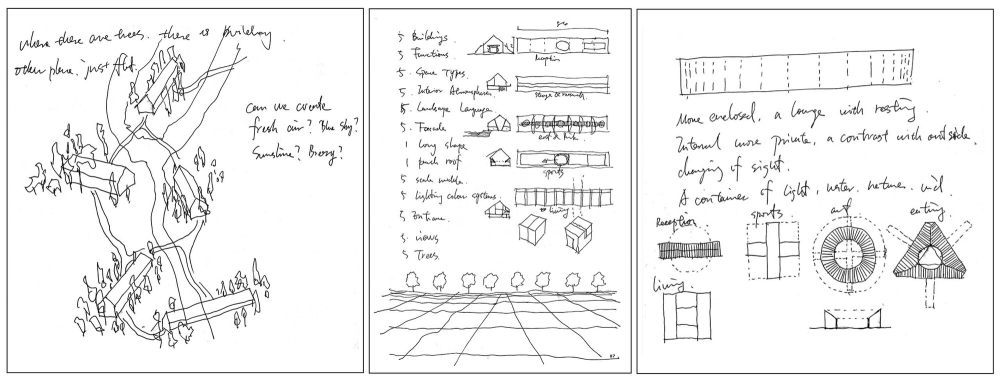 where there are trees. there is building.
other place. just flat.
Can we create
fresh air? Blue sky?
Sunshine? Breezy?
5 Buildings
5 Functions
5. Space Types
5. Interior Atmospheres
5. Landscape Language
5. Facade
1 long shape
1 pitch roof
5 scale module
5 lighting colour systems
3 Entrance
3. views
5 Trees
reception
eat & drink
sports
living
More enclosed, a lounge with roofing.
Internal more private, a contrast with outside.
changing of sight.
A container of light, water. nature. wind.
Reception
sports
art
eating
living